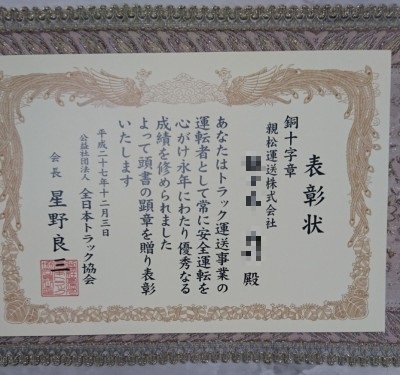 表彰状
銅十字章
親松運送株式会社
殿
あなたはトラック運送事業の
運転者として常に安全運転を
心がけ永年にわたり優秀なる
成績を修められました
よって頭書の顕章を贈り表彰
いたします
平成二十七年十二月三日
公益社団法人 全日本トラック協会
会長 星野良三